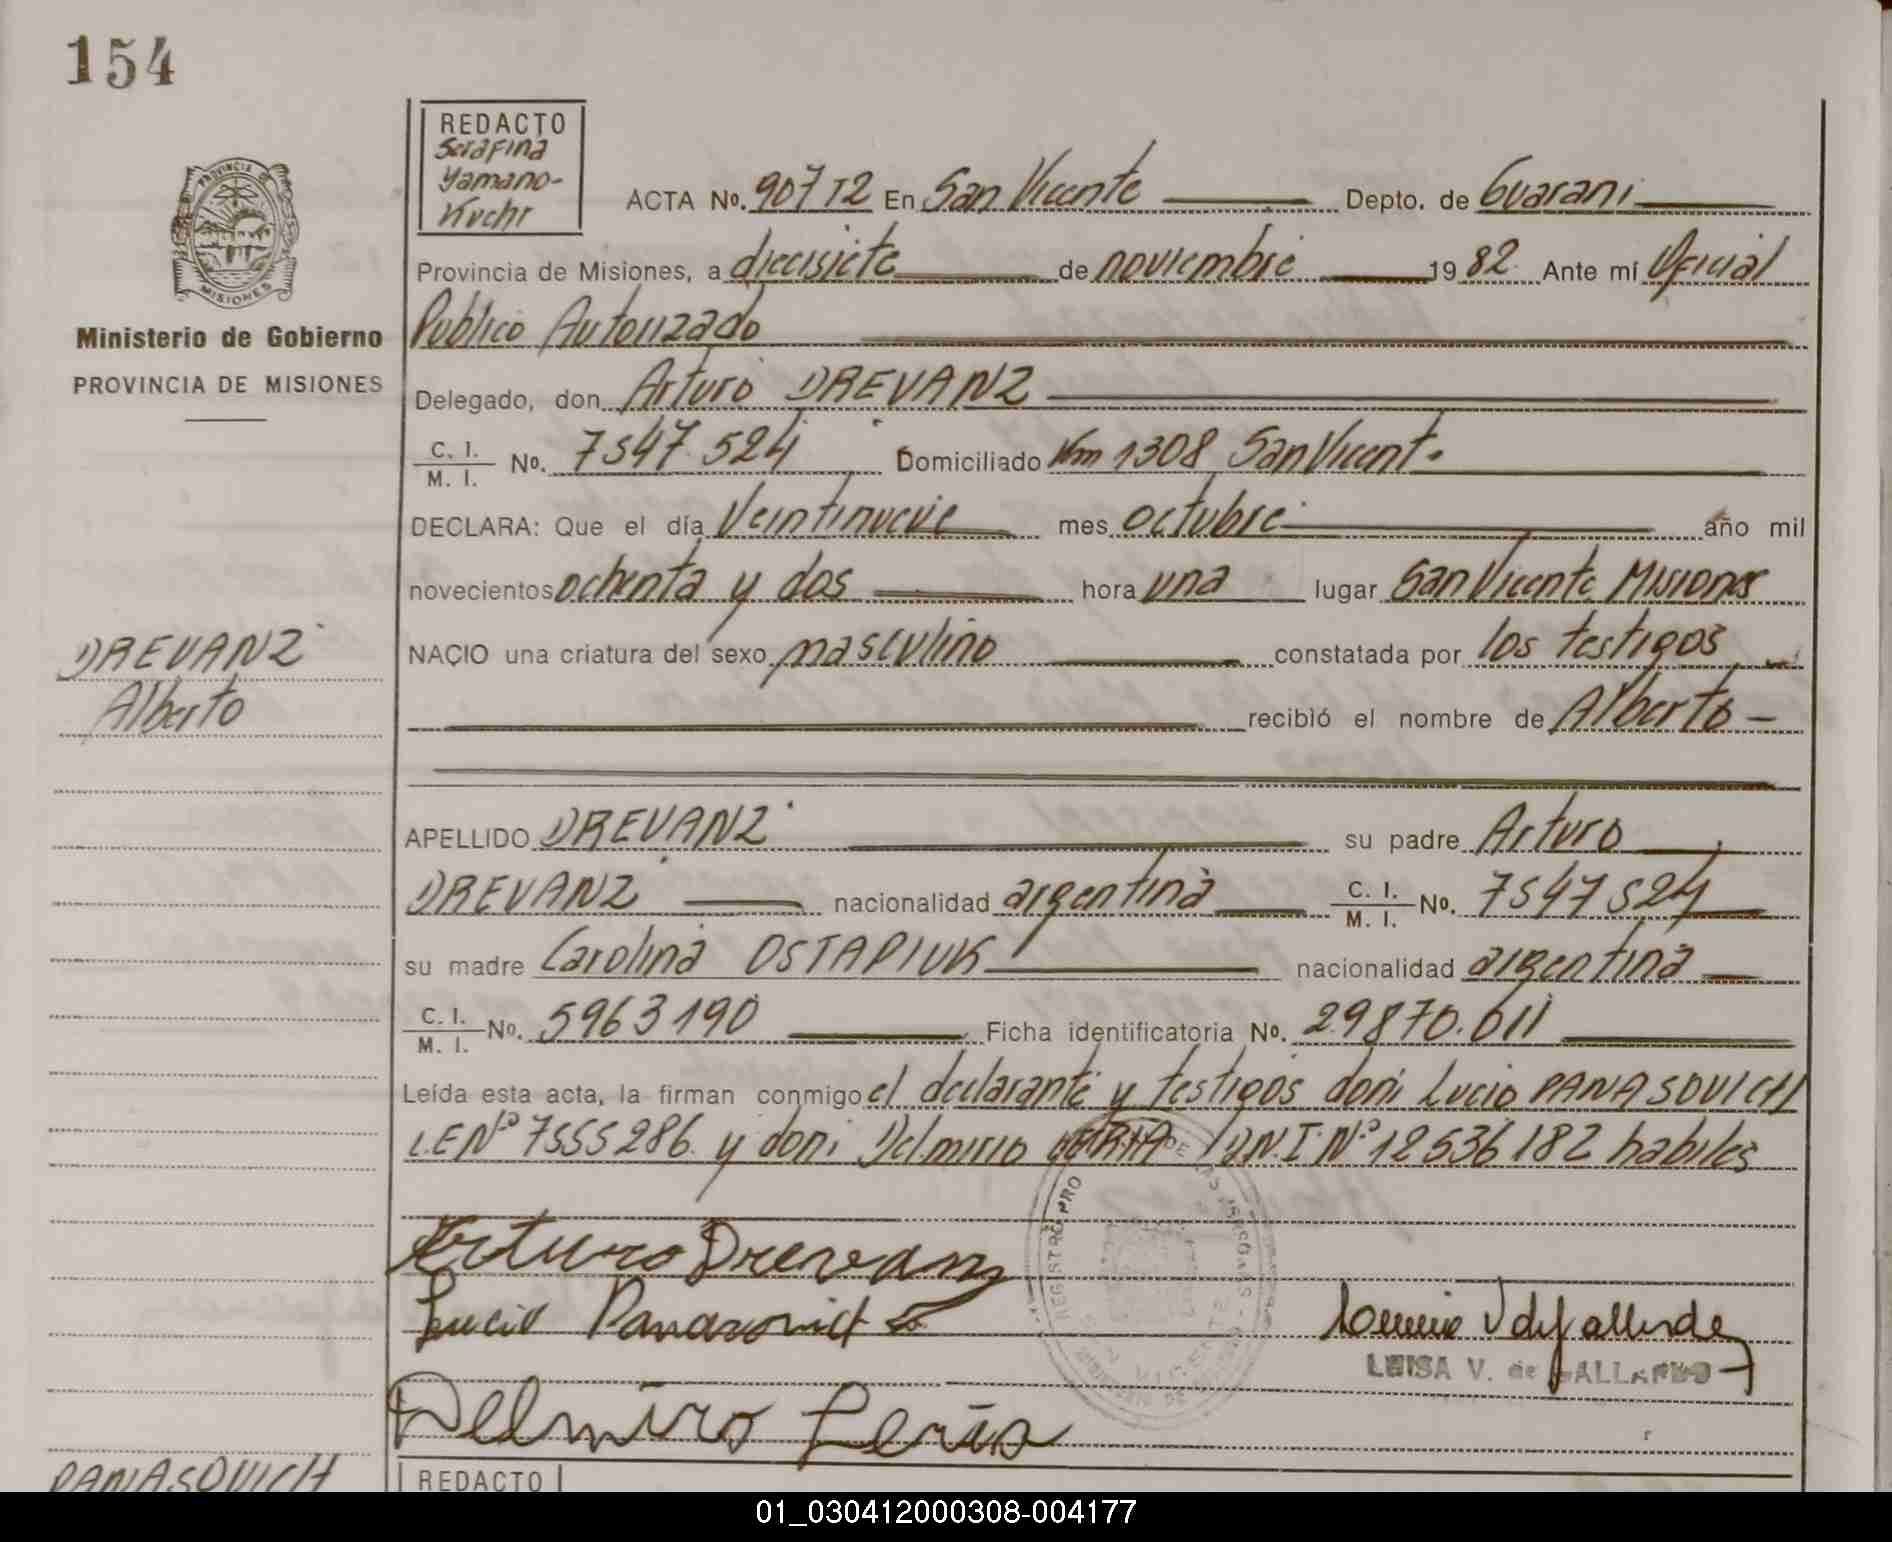 154
REDACTO
Serafina
Yamano-
Kuchr
PROVINCIA DE
MISIONES
Ministerio de Gobierno
PROVINCIA DE MISIONES
ACTA No. 907 T2 En San Vicente Depto. de Guarani
Provincia de Misiones, a diecisiete de noviembre 1982. Ante mí Oficial
Publico Autorizado
Delegado, don Arturo DREVANZ
C. I.
M. I. No. 7547.524 Domiciliado Km 1308 San Vicent.
DECLARA: Que el día Veintinueve mes octubre año mil
novecientos ochenta y dos hora una lugar San Vicente Misiones
NACIO una criatura del sexo masculino constatada por los testigos
recibió el nombre de Alberto -
DREVANZ
Alberto
APELLIDO DREVANZ su padre Arturo
DREVANZ nacionalidad argentina C. I.
M. I. No. 7547524
su madre Carolina OSTAPIUK nacionalidad argentina
C. I.
M. I. No. 5963190 Ficha identificatoria No. 29870.011
Leída esta acta, la firman conmigo el declarante y testigos don: Lucio PANASOVICH
L.E Nº 7555286. y don: Delmiro D.N.I.Nº 12536182 habiles
Arturo Drevanz
Lucio Panasovich
Delmiro
LUISA V. de GALLARDO
PANASOVICH
REDACTO
01_030412000308-004177